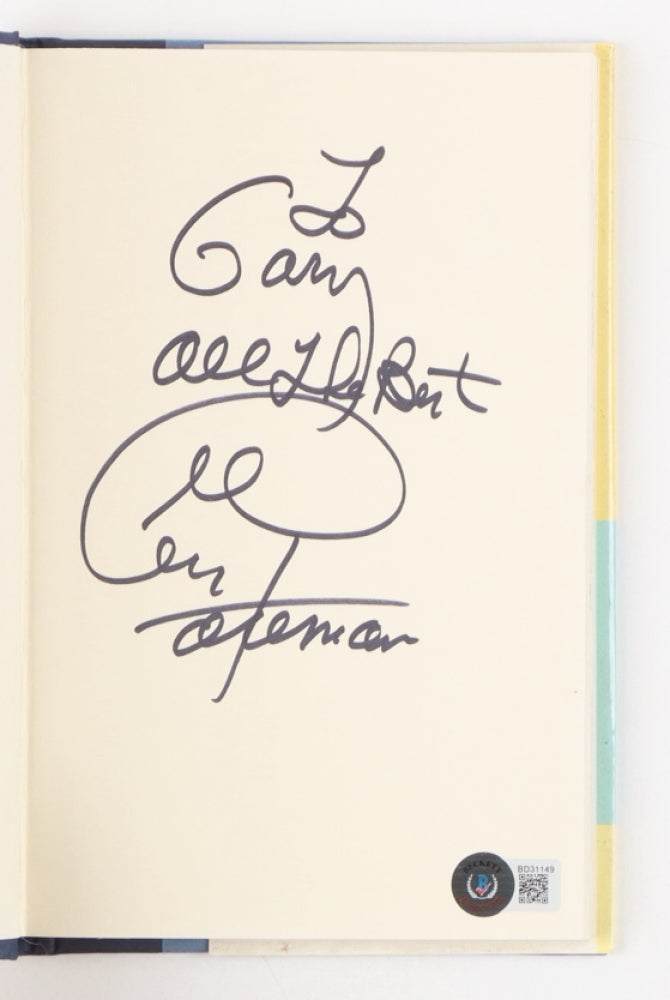 To
Gary
All The Best
George
Foreman
BECKETT
BD31149